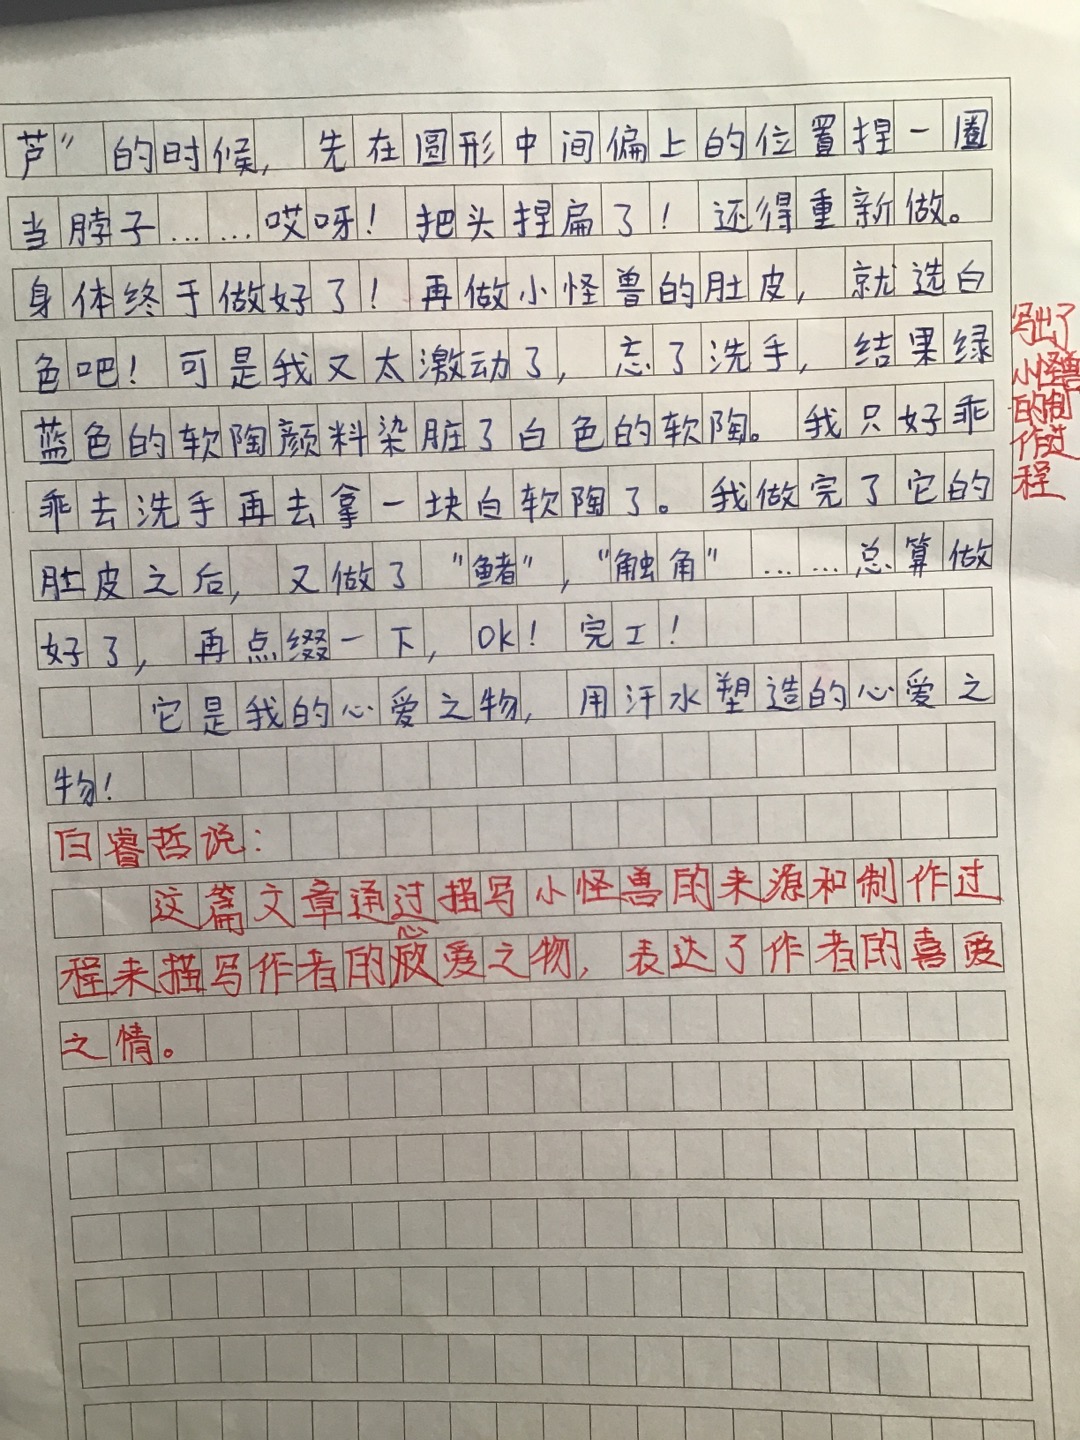 芦”的时候，先在圆形中间偏上的位置捏一圈
当脖子……哎呀！把头捏扁了！还得重新做。
身体终于做好了！再做小怪兽的肚皮，就选白
色吧！可是我又太激动了，忘了洗手，结果绿
蓝色的软陶颜料染脏了白色的软陶。我只好乖
乖去洗手再去拿一块白软陶了。我做完了它的
肚皮之后，又做了“鳍”，“触角”……总算做
好了，再点缀一下，OK！完工！
它是我的心爱之物，用汗水塑造的心爱之
物！
白睿哲说：
这篇文章通过描写小怪兽的来源和制作过
程来描写作者的心爱之物，表达了作者的喜爱
之情。
写出了
小怪兽
的制
作过
程